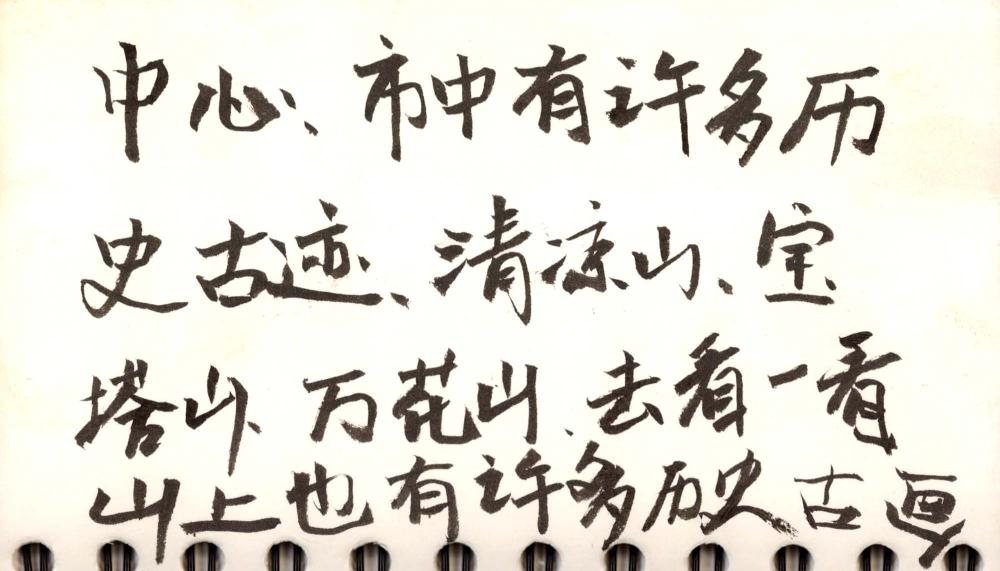 中心、市中有许多历
史古迹、清凉山、宝
塔山、万花山、去看一看
山上也有许多历史古画